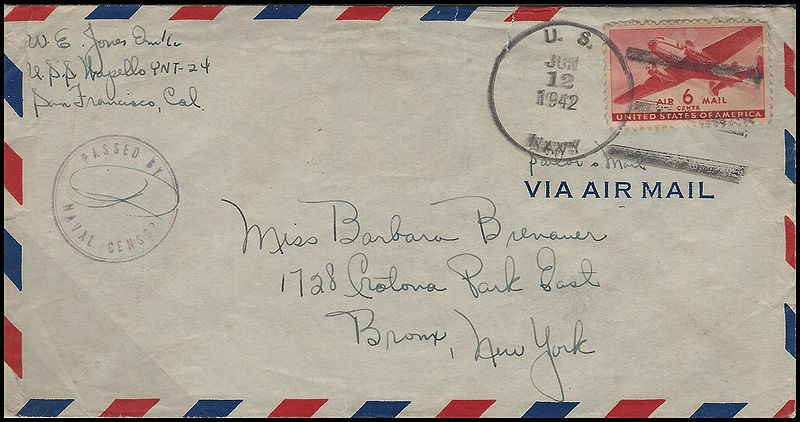 W. E. Jones Em1c
U.S.S Wapello YNT-24
San Francisco, Cal
PASSED BY
NAVAL CENSOR
U. S.
JUN
12
1942
NAVY
AIR 6 MAIL
CENTS
UNITED STATES OF AMERICA
Sailor's Mail
VIA AIR MAIL
Miss Barbara Brenauer
1728 Crotona Park East
Bronx, New York